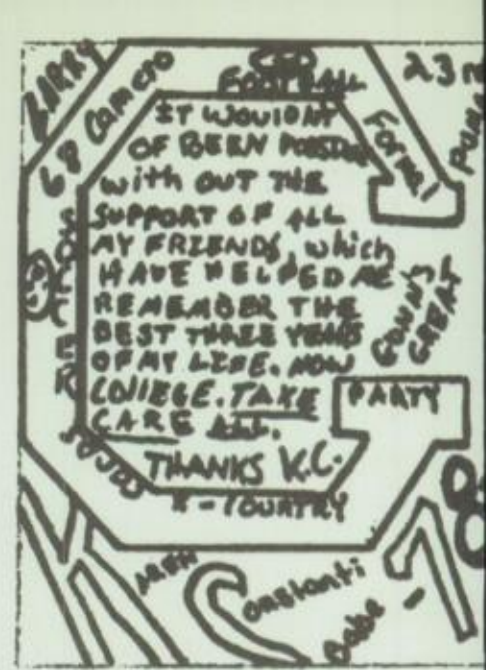 LARRY
68 CAMERO
FOOTBALL
23
FORMAL
IT WOULDNT
OF BEEN
With OUT THE
SUPPORT OF ALL
MY FRIENDS, which
HAVE HELPED ME
REMEMBER THE
BEST THREE YEARS
OF MY LIFE. NOW
COLLEGE. TAKE
CARE ALL.
THANKS K.C.
SOCCER
GUNNS
GREAT
PARTY
X-COUNTRY
KAREN
Constanti
Babe